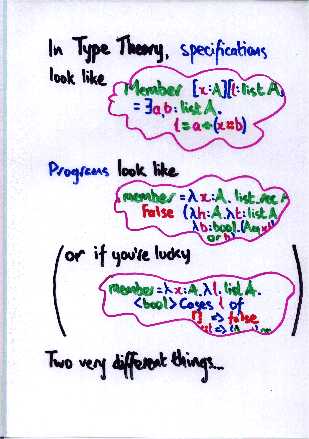 In Type Theory, specifications
look like
Member [x:A][l:list A]
= ∃a,b:list A.
l = a++(x::b)
Programs look like
member = λx:A. list_rec A
False (λh:A.λt:list A
λb:bool.(A
or b)
(or if you're lucky
member = λx:A.λl:list A.
<bool> Cases l of
[] => false
=>
Two very different things...